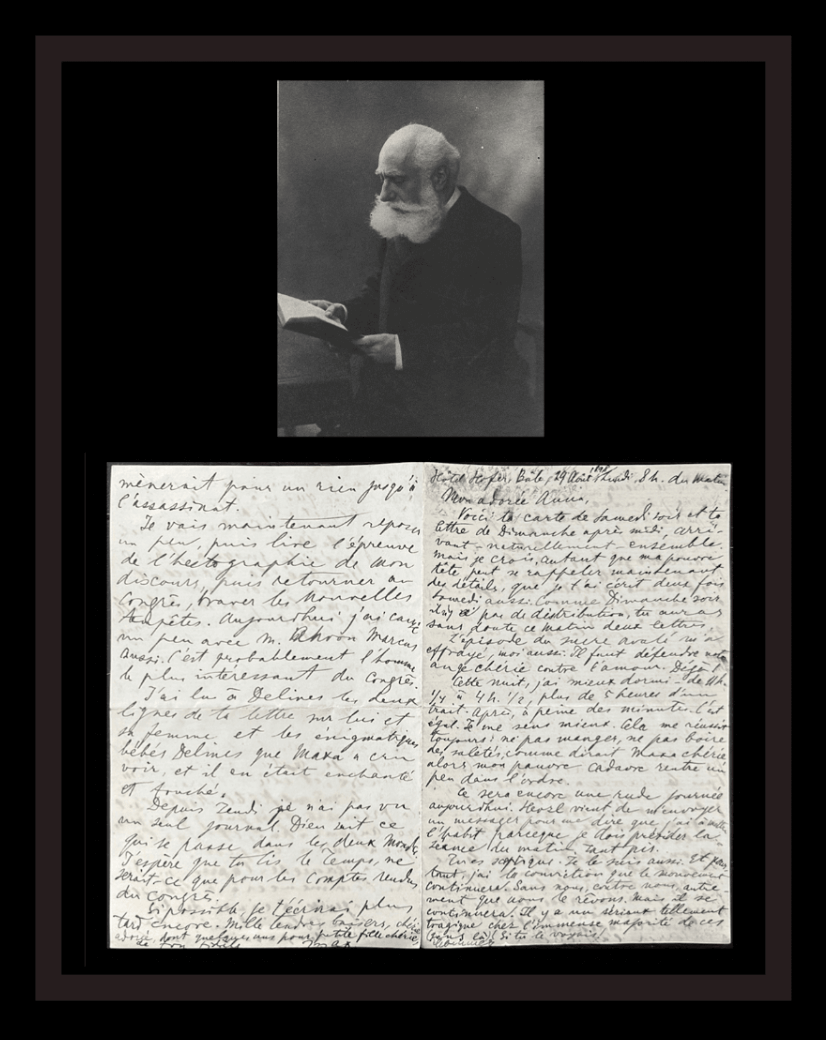 Hôtel Hofer, Bâle, 29 Août 1898 Lundi 8 h. du matin
Mon adorée Anna,
Voici ta carte de Samedi soir et ta
lettre de Dimanche après midi, arri-
vant naturellement ensemble.
Mais je crois, autant que ma pauvre
tête peut se rappeler maintenant
des détails, que je t'ai écrit deux fois
Samedi aussi. Comme Dimanche soir
il n'y a pas de distribution, tu auras
sans doute ce matin deux lettres.
L'épisode du sucre avalé m'a
effrayé, moi aussi. Il faut défendre notre
ange chérie contre l'amour. Déjà!
Cette nuit, j'ai mieux dormi - de 11 h.
1/4 à 4 h. 1/2, plus de 5 heures d'un
trait. Après, à peine des minutes. C'est
égal. Je me sens mieux. Cela me réussit
toujours: ne pas manger, ne pas boire
des saletés, comme dirait Maxa chérie
alors mon pauvre cadavre rentre un
peu dans l'ordre.
Ce sera encore une rude journée
aujourd'hui. Herzl vient de m'envoyer
un messager pour me dire que j'ai à mettre
l'habit parceque je dois présider la
séance du matin. Tant pis.
Tu es sceptique. Je le suis aussi. Et pour
tant, j'ai la conviction que le mouvement
continuera. Sans nous, contre nous, autre-
ment que nous le rêvons. Mais il se
continuera. Il y a un sérieux tellement
tragique chez l'immense majorité de ces
gens là! Si tu le voyais!
mènerait pour un rien jusqu'à
l'assassinat.
Je vais maintenant reposer
un peu, puis lire l'épreuve
de l'hectographie de mon
discours, puis retourner au
Congrès, braver les nouvelles
tempêtes. Aujourd'hui j'ai causé
un peu avec M. Ahron Marcus
aussi. C'est probablement l'homme
le plus intéressant du Congrès.
J'ai lu à Delines les deux
lignes de ta lettre sur lui et
sa femme et les énigmatiques
bébés Delines que Maxa a cru
voir, et il en était enchanté
et touché.
Depuis Zendi je n'ai pas vu
un seul journal. Dieu sait ce
qui se passe dans les deux Mondes.
J'espère que tu lis le Temps, ne
serait-ce que pour les comptes rendus
du congrès.
Si possible je t'écrirai plus
tard encore. Mille tendres baisers, chérie
adorée, dont quelques uns pour petite fille chérie,